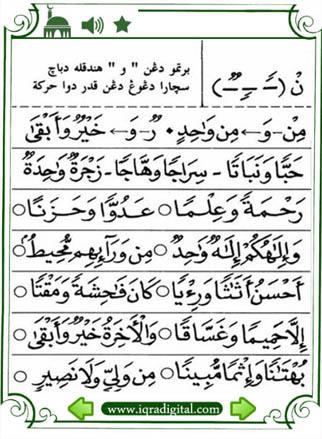 نْ (ـً ـٍ ـٌ)
برتمو دڠن " و " هندقله دباچ
سچارا دڠوڠ دڠن قدر دوا حركة
مِنْ - وَ ← مِنْ وَاحِدٍ • رٌ - وَ ← خَيْرٌ وَأَبْقَىٰ
حَبًّا وَنَبَاتًا - سِرَاجًا وَهَّاجًا - زَجْرَةٌ وَاحِدَةٌ
رَحْمَةً وَعِلْمًا ○ عَدُوًّا وَحَزَنًا ○
وَإِلَٰهُكُمْ إِلَٰهٌ وَاحِدٌ ○ مِنْ وَرَآءِهِمْ مُحِيطٌ ○
أَحْسَنُ أَثَٰثًا وَرِءْيًا ○ كَانَ فَٰحِشَةً وَمَقْتًا ○
إِلَّا حَمِيمًا وَغَسَّاقًا ○ وَالْأَخِرَةُ خَيْرٌ وَأَبْقَىٰ ○
بُهْتَٰنًا وَإِثْمًا مُّبِينًا ○ مِنْ وَلِيٍّ وَلَا نَصِيرٍ ○
www.iqradigital.com